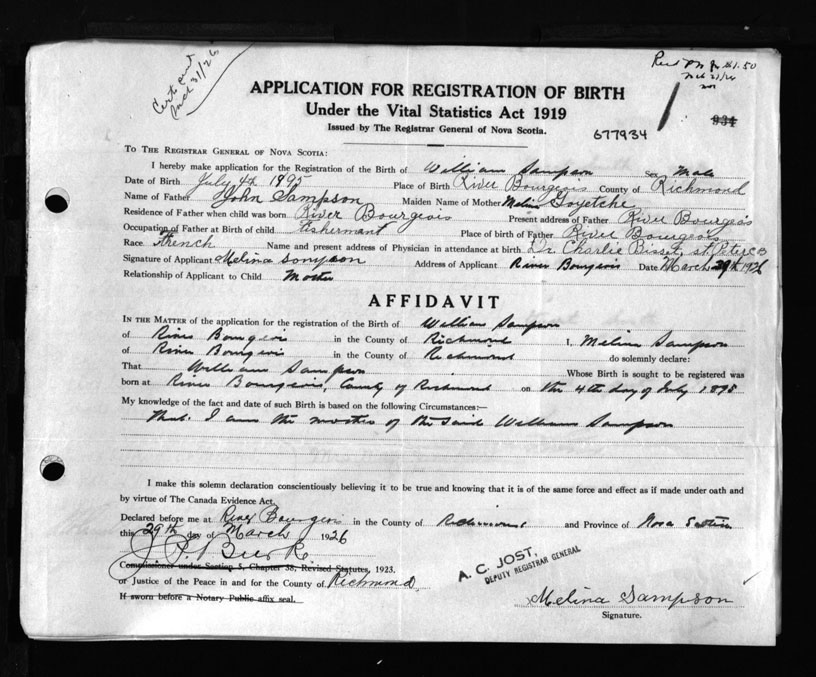 Cert sent
Mch 31/26
Mch 31/26
APPLICATION FOR REGISTRATION OF BIRTH
Under the Vital Statistics Act 1919
Issued by The Registrar General of Nova Scotia.
677934
934
TO THE REGISTRAR GENERAL OF NOVA SCOTIA:
I hereby make application for the Registration of the Birth of William Sampson Sex Male
Date of Birth July 4th 1895 Place of Birth River Bourgeois County of Richmond
Name of Father John Sampson Maiden Name of Mother Melina Goyetche
Residence of Father when child was born River Bourgeois Present address of Father River Bourgeois
Occupation of Father at Birth of child fishermant Place of birth of Father River Bourgeois
Race French Name and present address of Physician in attendance at birth Dr. Charlie Bisset, St. Peters CB
Signature of Applicant Melina Sampson Address of Applicant River Bourgeois Date March 29th 1926
Relationship of Applicant to Child Mother
AFFIDAVIT
IN THE MATTER of the application for the registration of the Birth of William Sampson
of River Bourgeois in the County of Richmond I, Melina Sampson
of River Bourgeois in the County of Richmond do solemnly declare:
That William Sampson Whose Birth is sought to be registered was
born at River Bourgeois, County of Richmond on the 4th day of July 1895
My knowledge of the fact and date of such Birth is based on the following Circumstances:—
that I am the mother of the said William Sampson
I make this solemn declaration conscientiously believing it to be true and knowing that it is of the same force and effect as if made under oath and
by virtue of The Canada Evidence Act.
Declared before me at River Bourgeois in the County of Richmond and Province of Nova Scotia
this 29th day of March 1926
Commissioner under Section 5, Chapter 38, Revised Statutes, 1923.
or Justice of the Peace in and for the County of Richmond
If sworn before a Notary Public affix seal.
A. C. JOST,
DEPUTY REGISTRAR GENERAL
Melina Sampson
Signature.